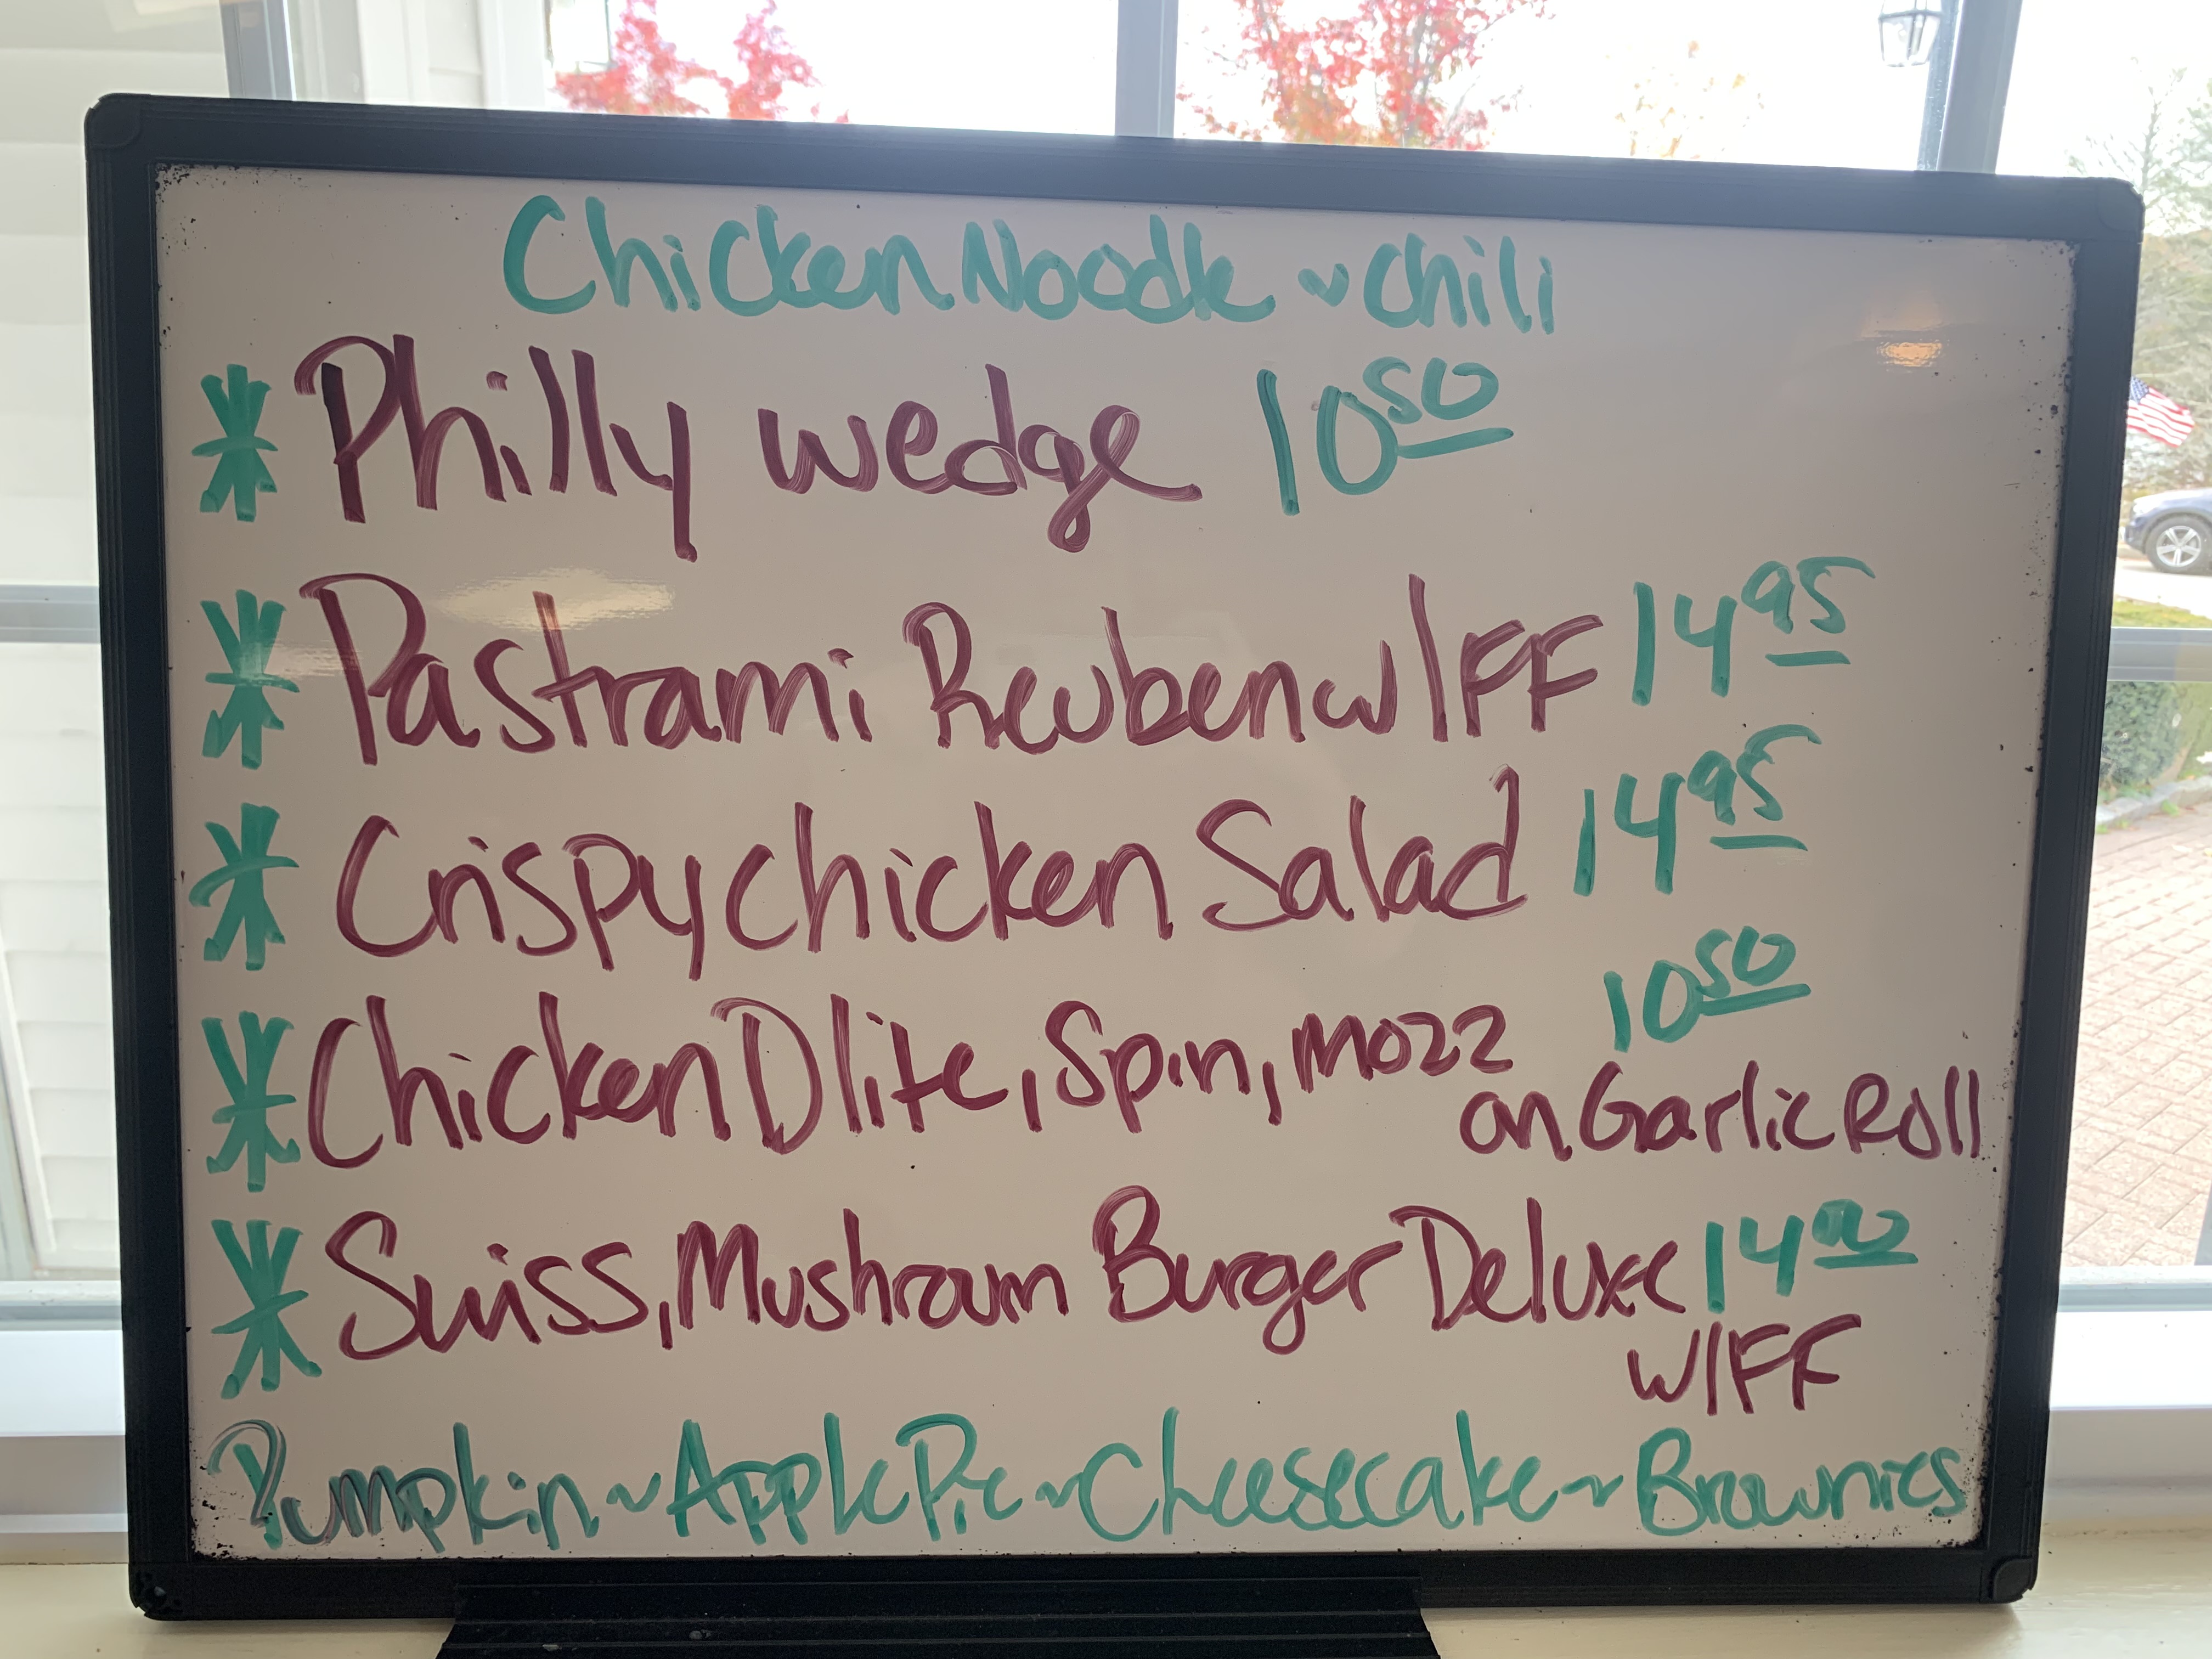 Chicken Noodle ~ Chili
* Philly Wedge 10 50
* Pastrami Reuben w/FF 14 95
* Crispy Chicken Salad 14 95
* Chicken Dlite, Spin, Mozz 10 50
on Garlic Roll
* Swiss, Mushroom Burger Deluxe 14 00
w/FF
Pumpkin ~ Apple Pie ~ Cheesecake ~ Brownies